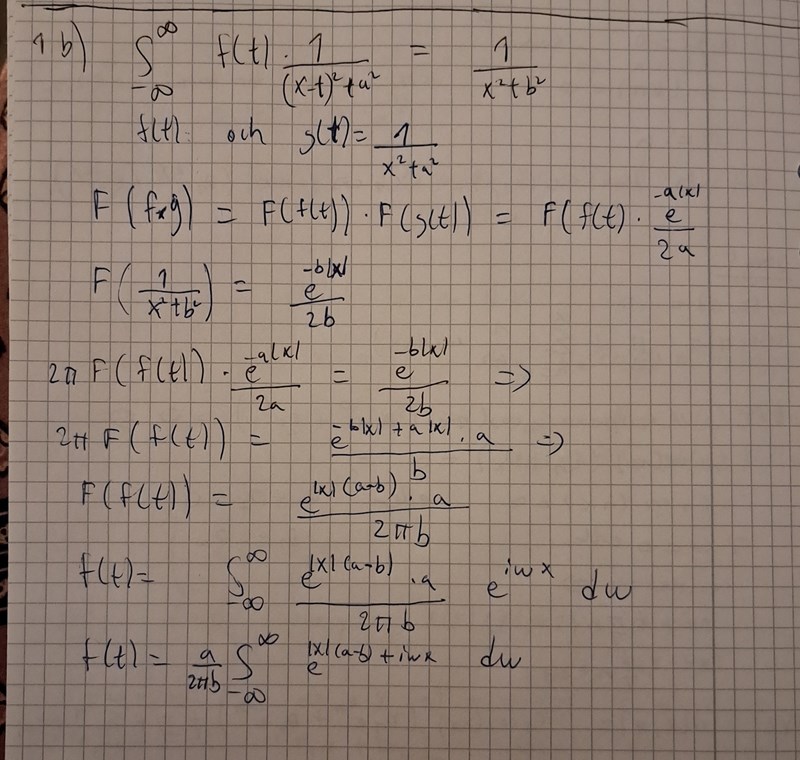 1 b) ∫_{-∞}^{∞} f(t) · \frac{1}{(x-t)²+a²} = \frac{1}{x²+b²}
f(t) och g(t) = \frac{1}{x²+a²}
F(f*g) = F(f(t)) · F(g(t)) = F(f(t) · \frac{e^{-a|x|}}{2a}
F(\frac{1}{x²+b²}) = \frac{e^{-b|x|}}{2b}
2π F(f(t)) · \frac{e^{-a|x|}}{2a} = \frac{e^{-b|x|}}{2b} =>
2π F(f(t)) = \frac{e^{-b|x|+a|x|} · a}{b} =>
F(f(t)) = \frac{e^{|x|(a-b)} · a}{2πb}
f(t) = ∫_{-∞}^{∞} \frac{e^{|x|(a-b)} · a}{2πb} e^{iwx} dw
f(t) = \frac{a}{2πb} ∫_{-∞}^{∞} e^{|x|(a-b)+iwx} dw